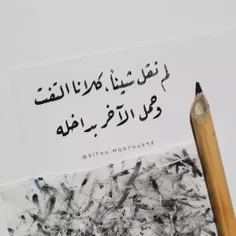 لم نقل شيئاً، كلانا التفت
وحمل الآخر بداخله